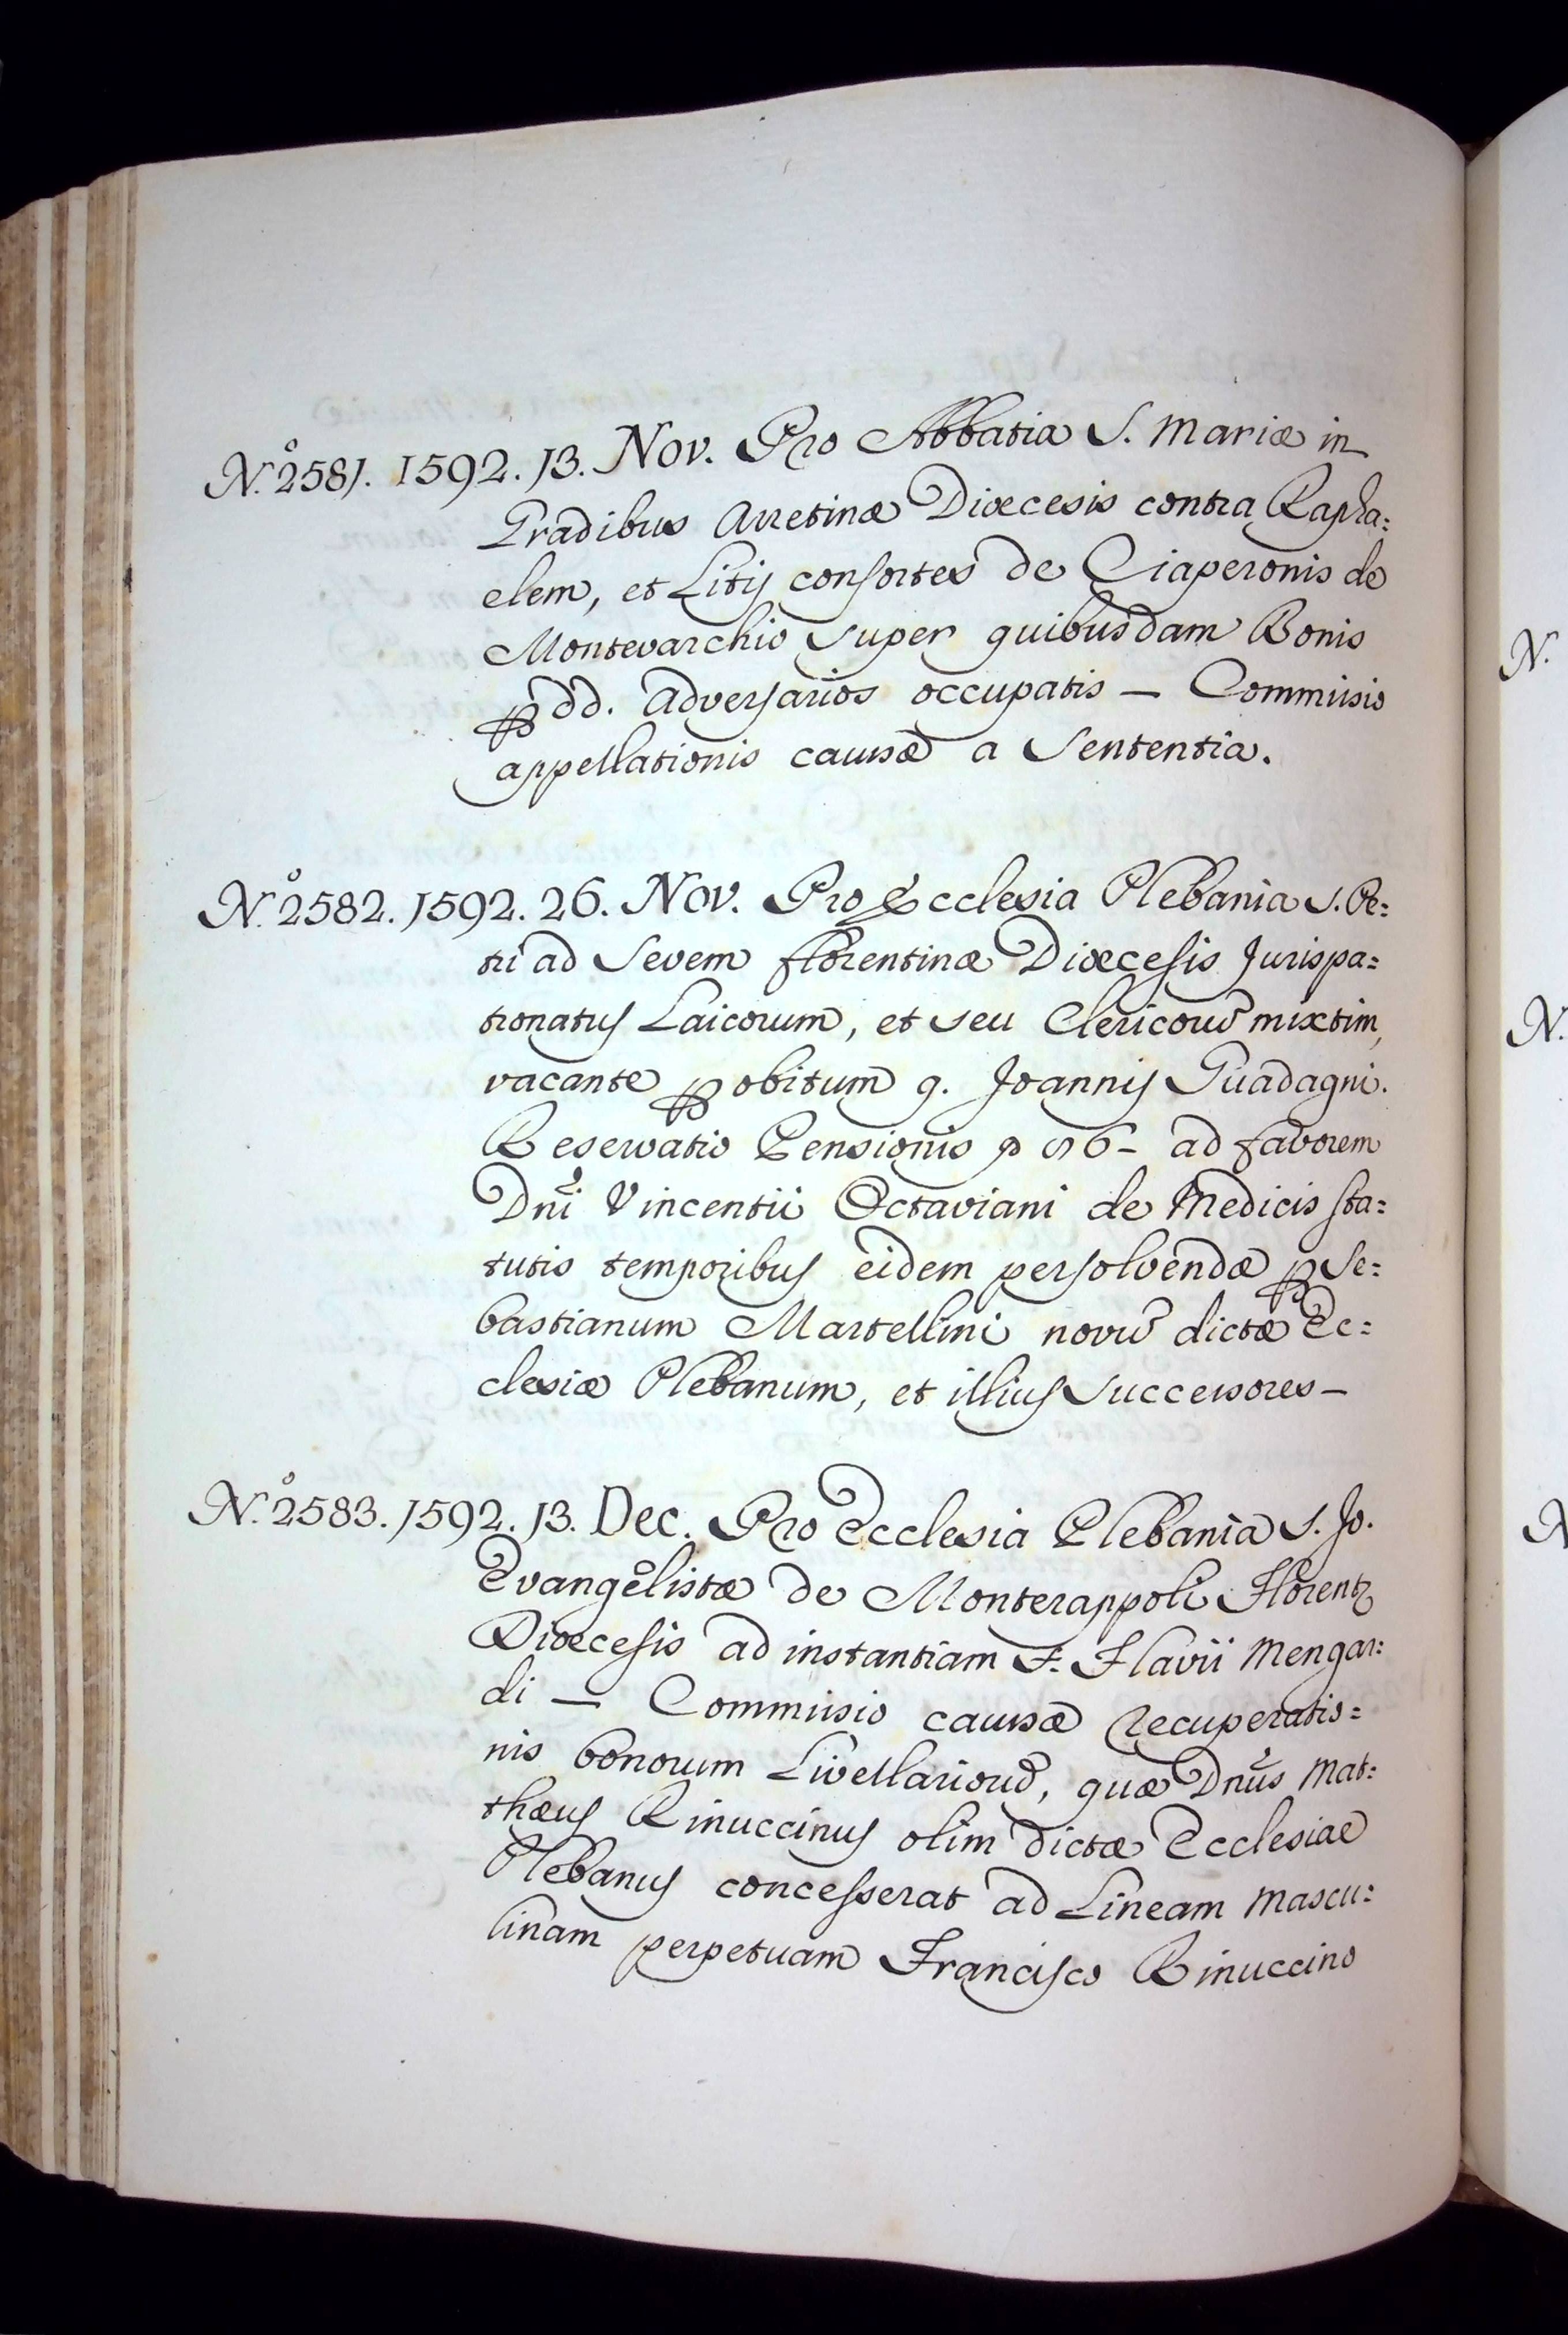 N.º 2581. 1592. 13. Nov. Pro Abbatia S. Mariæ in
Gradibus Arretinæ Diœcesis contra Rapha=
elem, et Litis consortes de Ciaperonis de
Montevarchio super quibusdam Bonis
ꝑ dd. adversarios occupatis — Commissio
appellationis causæ a Sententia.
N.º 2582. 1592. 26. Nov. Pro Ecclesia Plebania S. Pe=
tri ad Sevem florentinæ Diœcesis Jurispa=
tronatus Laicorum, et seu Clericorū mixtim,
vacante ꝑ obitum q. Joannis Guadagni.
Reservatio Pensionis ad favorem
Dñi Vincentii Octaviani de Medicis sta=
tutis temporibus eidem persolvendæ ꝑ Se=
bastianum Martellini novū dictæ Ec=
clesiæ Plebanum, et illius Successores —
N.º 2583. 1592. 13. Dec. Pro Ecclesia Plebania S. Jo.
Evangelistæ de Monterappoli Florent
Diœcesis ad instantiam F. Flavii Mengar=
di — Commissio causæ recuperatio=
nis bonorum Livellariorū, quæ Dñus Mat=
thæus Rinuccinus olim dictæ Ecclesiae
Plebanus concesserat ad Lineam mascu=
linam perpetuam Francisco Rinuccino
N.
N.
N